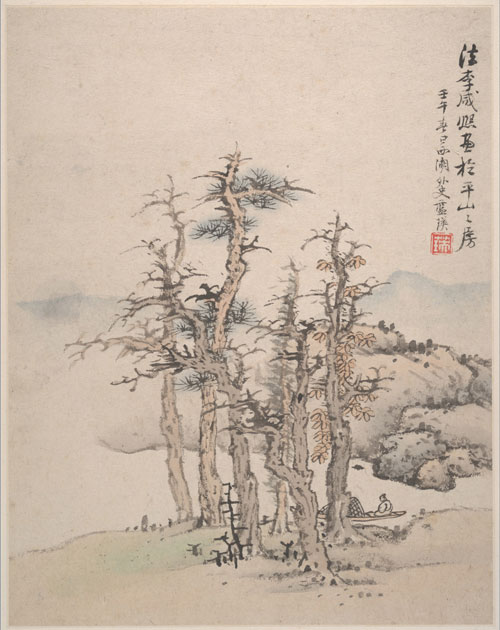 法李咸熙畫於平山之房
壬午春日西湖外史藍瑛